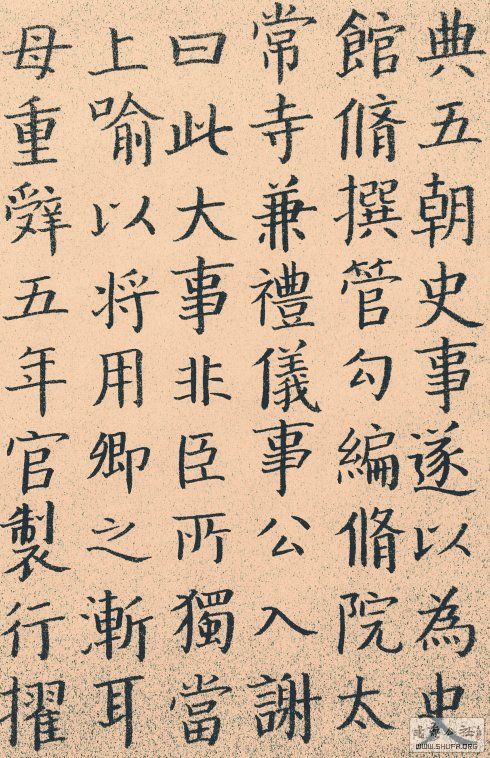 典五朝史事遂以為史
館脩撰管勾編脩院太
常寺兼禮儀事公入謝
曰此大事非臣所獨當
上喻以将用卿之漸耳
母重辤五年官製行擢
WWW.SHUFA.ORG